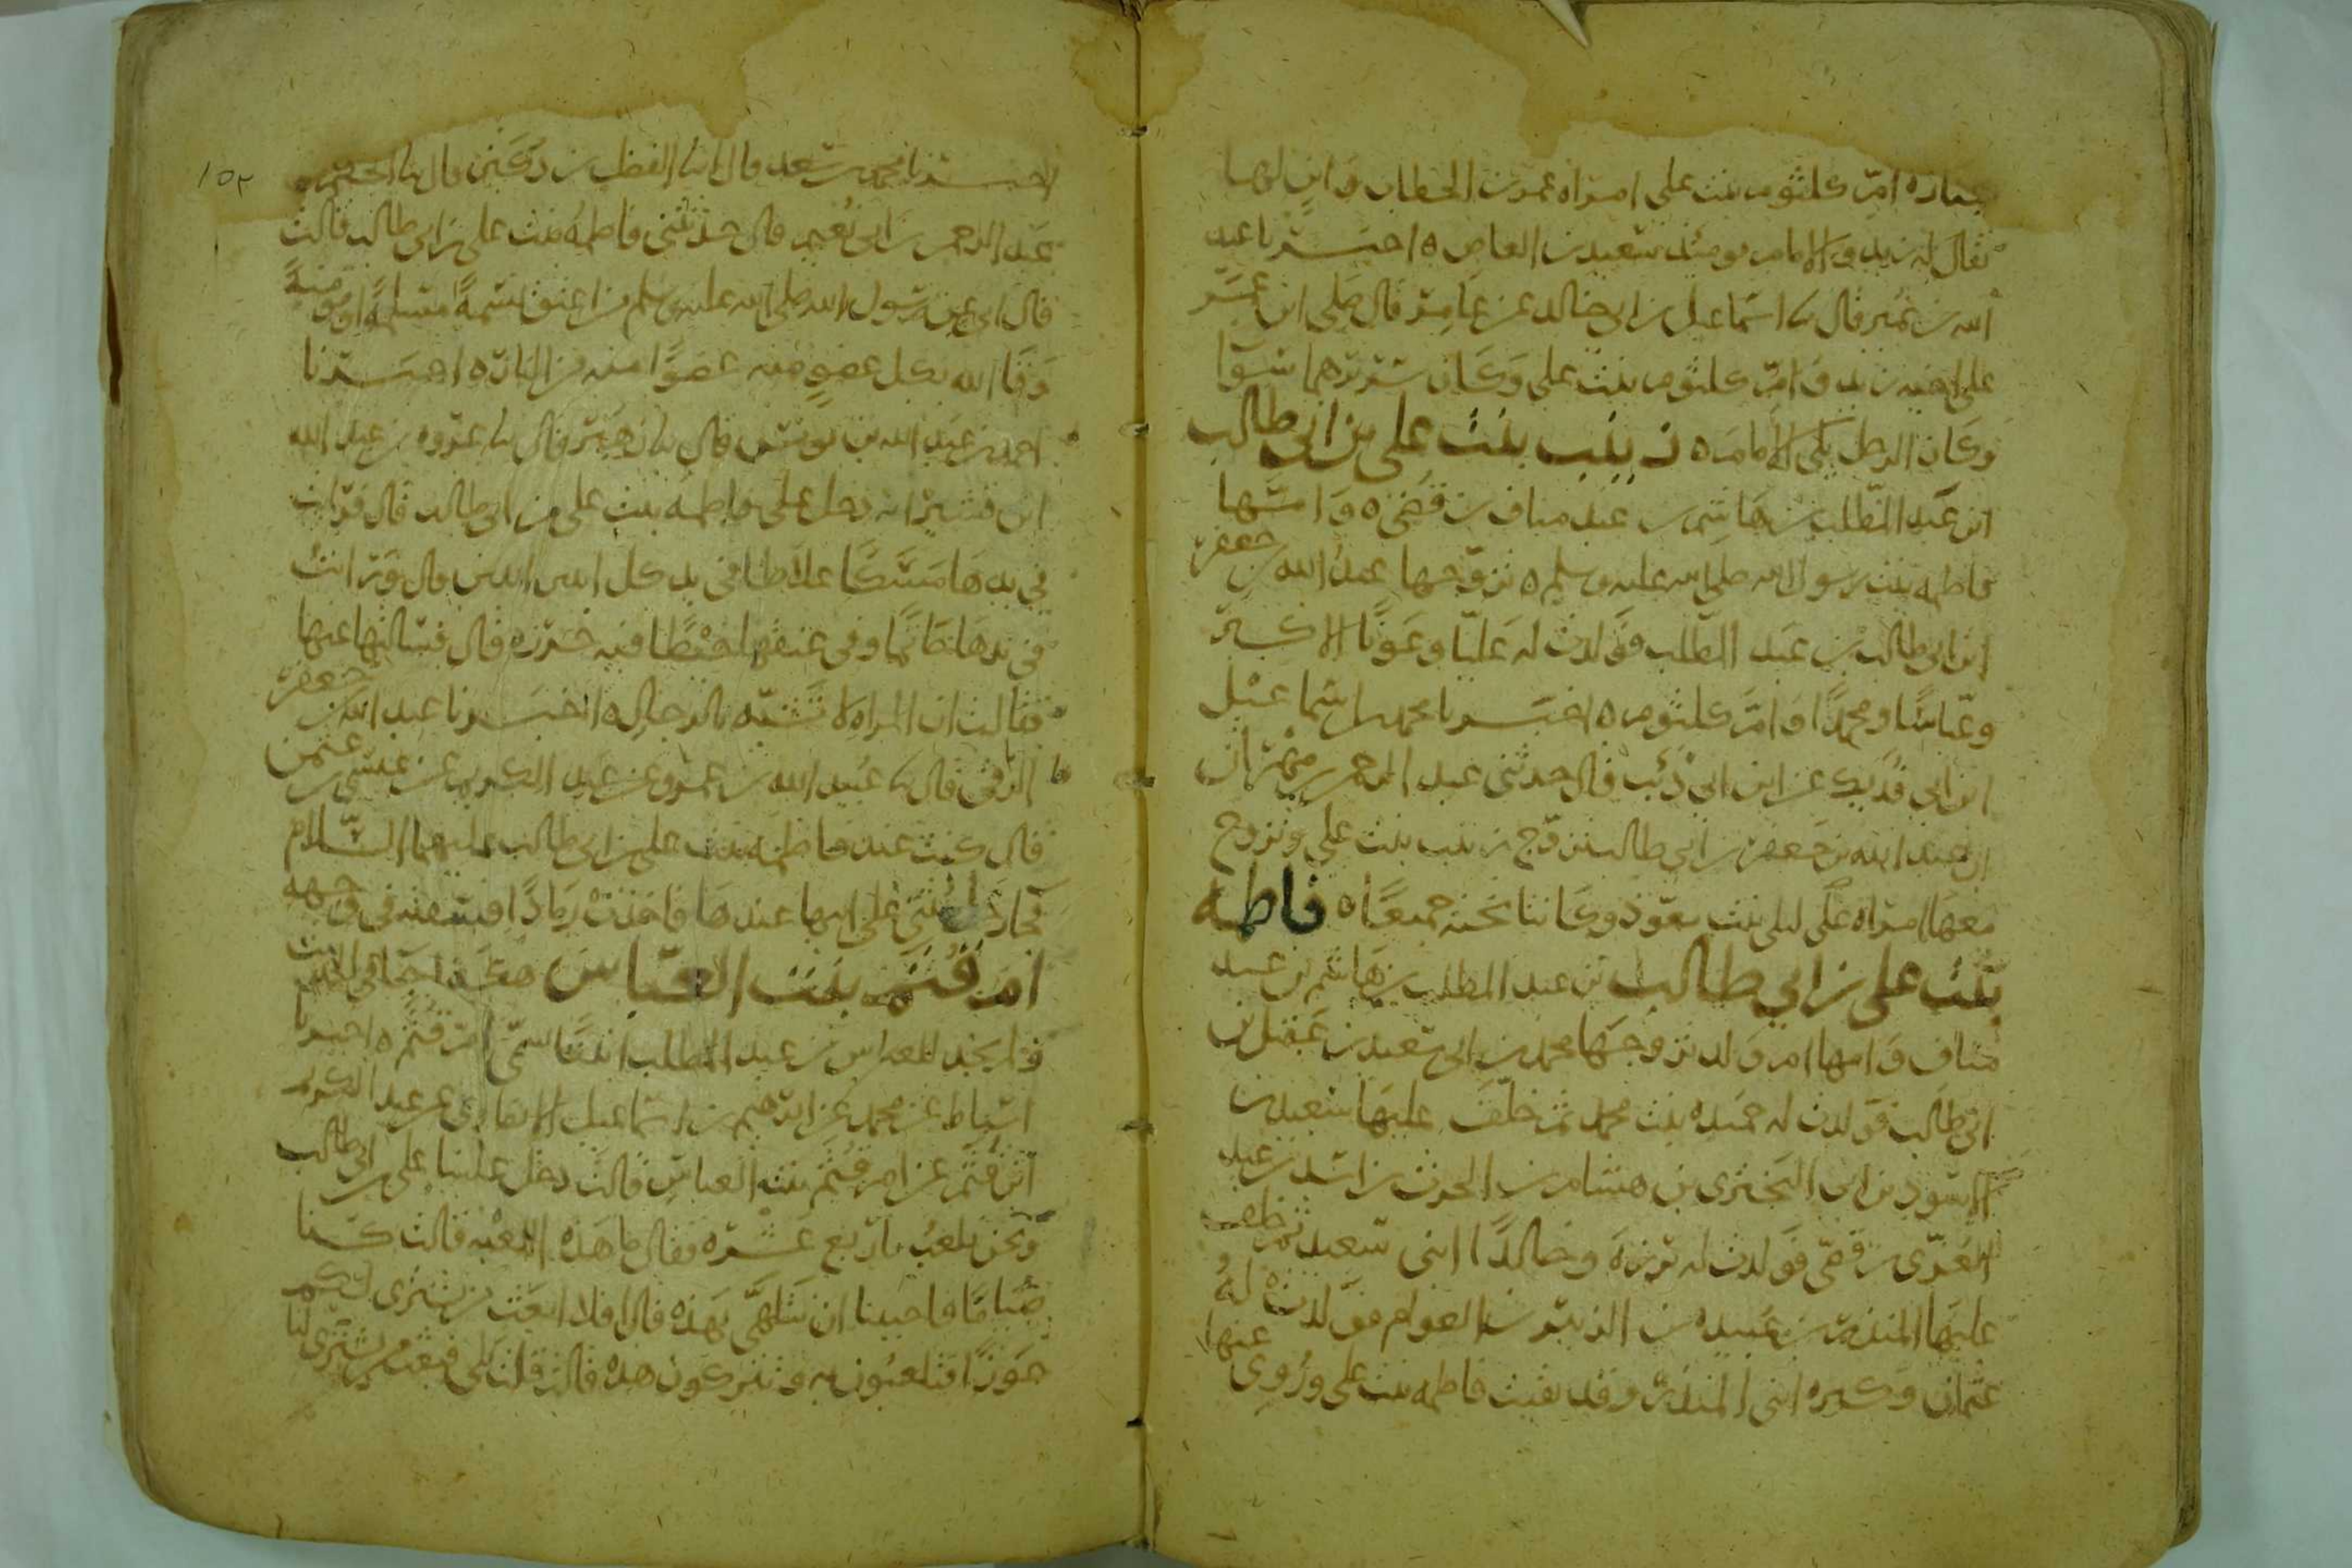 جنازة ام كلثوم بنت علي امراة عمر بن الخطاب وابن لها
يقال له زيد والامام يومئذ سعيد بن العاص ه اخبرنا عبيد
الله بن نمير قال نا اسماعيل بن ابي خالد عن عامر قال صلى ابن عمر
على اخيه زيد وام كلثوم بنت علي وكان سريرهما سوا
وكان الرجل يلي الامام ه زينب بنت علي بن ابي طالب
ابن عبد المطلب بن هاشم بن عبد مناف بن قصي ه وامها
فاطمة بنت رسول الله صلى الله عليه وسلم ه تزوجها عبد الله بن جعفر
ابن ابي طالب بن عبد المطلب فولدت له عليا وعونا الاكبر
وعباسا ومحمدا وام كلثوم ه اخبرنا محمد بن اسماعيل
ابن ابي فديك عن ابن ابي ذئب قال حدثني عبد الرحمن بن مهران
ان عبد الله بن جعفر بن ابي طالب تزوج زينب بنت علي وتزوج
معها امراة علي ليلى بنت مسعود وكانتا تحته جميعا ه فاطمة
بنت علي بن ابي طالب بن عبد المطلب بن هاشم بن عبد
مناف وامها ام ولد تزوجها محمد بن ابي سعيد بن عقيل بن
ابي طالب فولدت له حميدة بنت محمد ثم خلف عليها سعيد بن
الاسود بن ابي البختري بن هشام بن الحرث بن اسد بن عبد
العزى بن قصي فولدت له برزة وخالدا ابني سعيد ثم خلف
عليها المنذر بن عبيدة بن الزبير بن العوام فولدت له
عثمان وكبرة ابني المنذر وقد بقيت فاطمة بنت علي وروي عنها
١٥٢
اخبرنا محمد بن سعد قال انا الفضل بن دكين قال نا الحكم بن
عبد الرحمن بن ابي نعيم قال حدثتني فاطمة بنت علي بن ابي طالب قالت
قال ابي عن رسول الله صلى الله عليه وسلم من اعتق نسمة مسلمة او مومنة
وقا الله بكل عضو منه عضوا منه من النار ه اخبرنا
احمد بن عبد الله بن يونس قال نا زهير قال نا عروة بن عبد الله
ابن قشير انه دخل على فاطمة بنت علي بن ابي طالب قال فرايت
في يدها مسكا غلاظا في يد كل اثنين اثنين قال ورايت
في يدها خاتما وفي عنقها خيطا فيه خرزة قال فسالتها عنها
فقالت ان المراة لا تشبه بالرجال ه اخبرنا عبد الله بن جعفر
الرقي قال نا عبيد الله بن عمرو عن عبد الكريم عن عيسى بن عثمن
قال كنت عند فاطمة بنت علي بن ابي طالب عليهما السلام
فجا رجل يثني على ابيها عندها فاخذت رمادا فسفته في وجهه
ام قثم بنت العباس
ولم يجد للعباس بن عبد المطلب ابنتا سمى ام قثم ه اخبرنا
اسباط بن محمد عن ابرهيم بن اسماعيل الانصاري عن عبد الكريم
ابن قثم عن ام قثم بنت العباس قالت دخل علينا علي بن ابي طالب
ونحن نلعب باربع عشرة فقال ما هذه اللعبة قالت كنا
صياما فاحببنا ان نتلهى بهذه قال افلا ابعث من يشتري لكم
جوزا فتلعبون به وتتركون هذه قالت قلت بلى فبعث من يشتري لنا